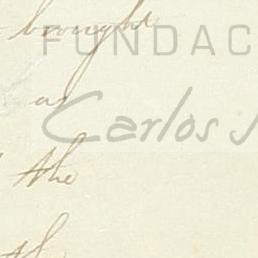 brought
FUNDAC
as
Carlos
the
the